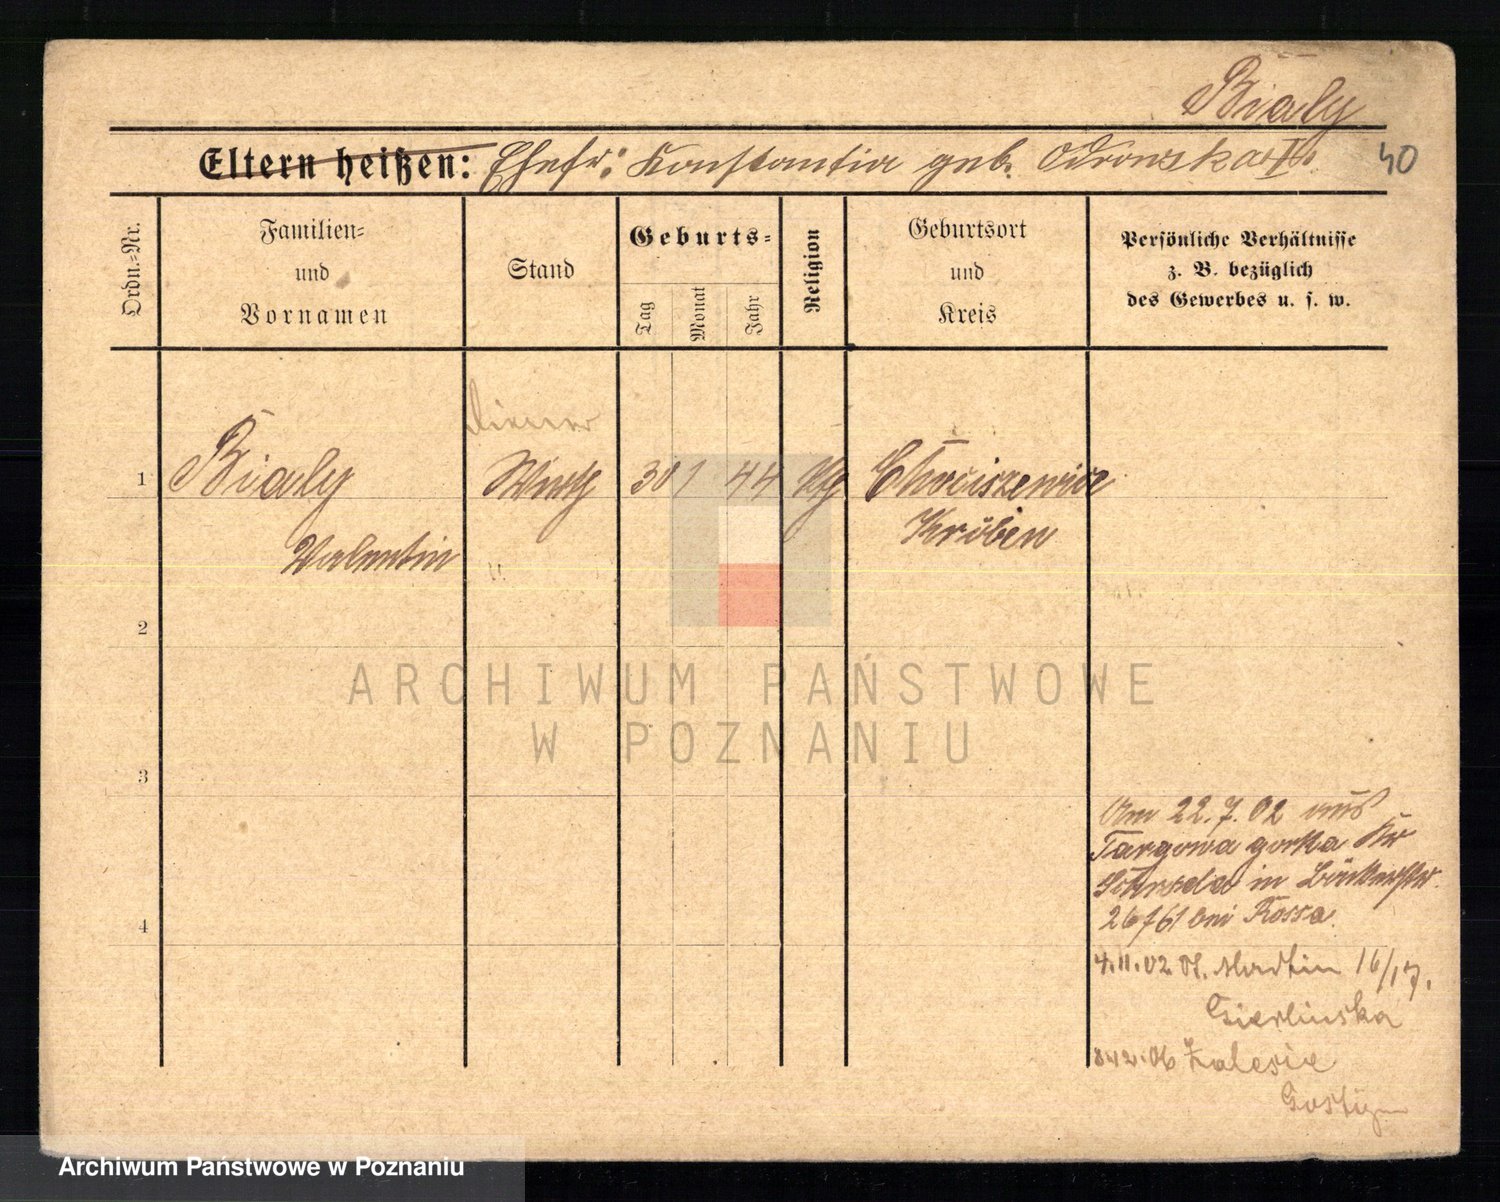 Bialy
Eltern heißen: Ehefr: Konstantia geb. Odrowska
40
Ordn.-Nr.
Familien-
und
Vornamen
Stand
Geburts-
Tag
Monat
Jahr
Religion
Geburtsort
und
Kreis
Persönliche Verhältnisse
z. B. bezüglich
des Gewerbes u. s. w.
Diener
1 Bialy Wirth 30 1 44 Chociszewice
Valentin Kröben
2
ARCHIWUM PAŃSTWOWE
W POZNANIU
3
Am 22.7.02 aus
Targowa gorka Kr
Schroda in
4
26/61 bei Kossa.
4.11.02 St. Martin 16/17.
Gierlinska
Zalesie
Gostyn
Archiwum Państwowe w Poznaniu